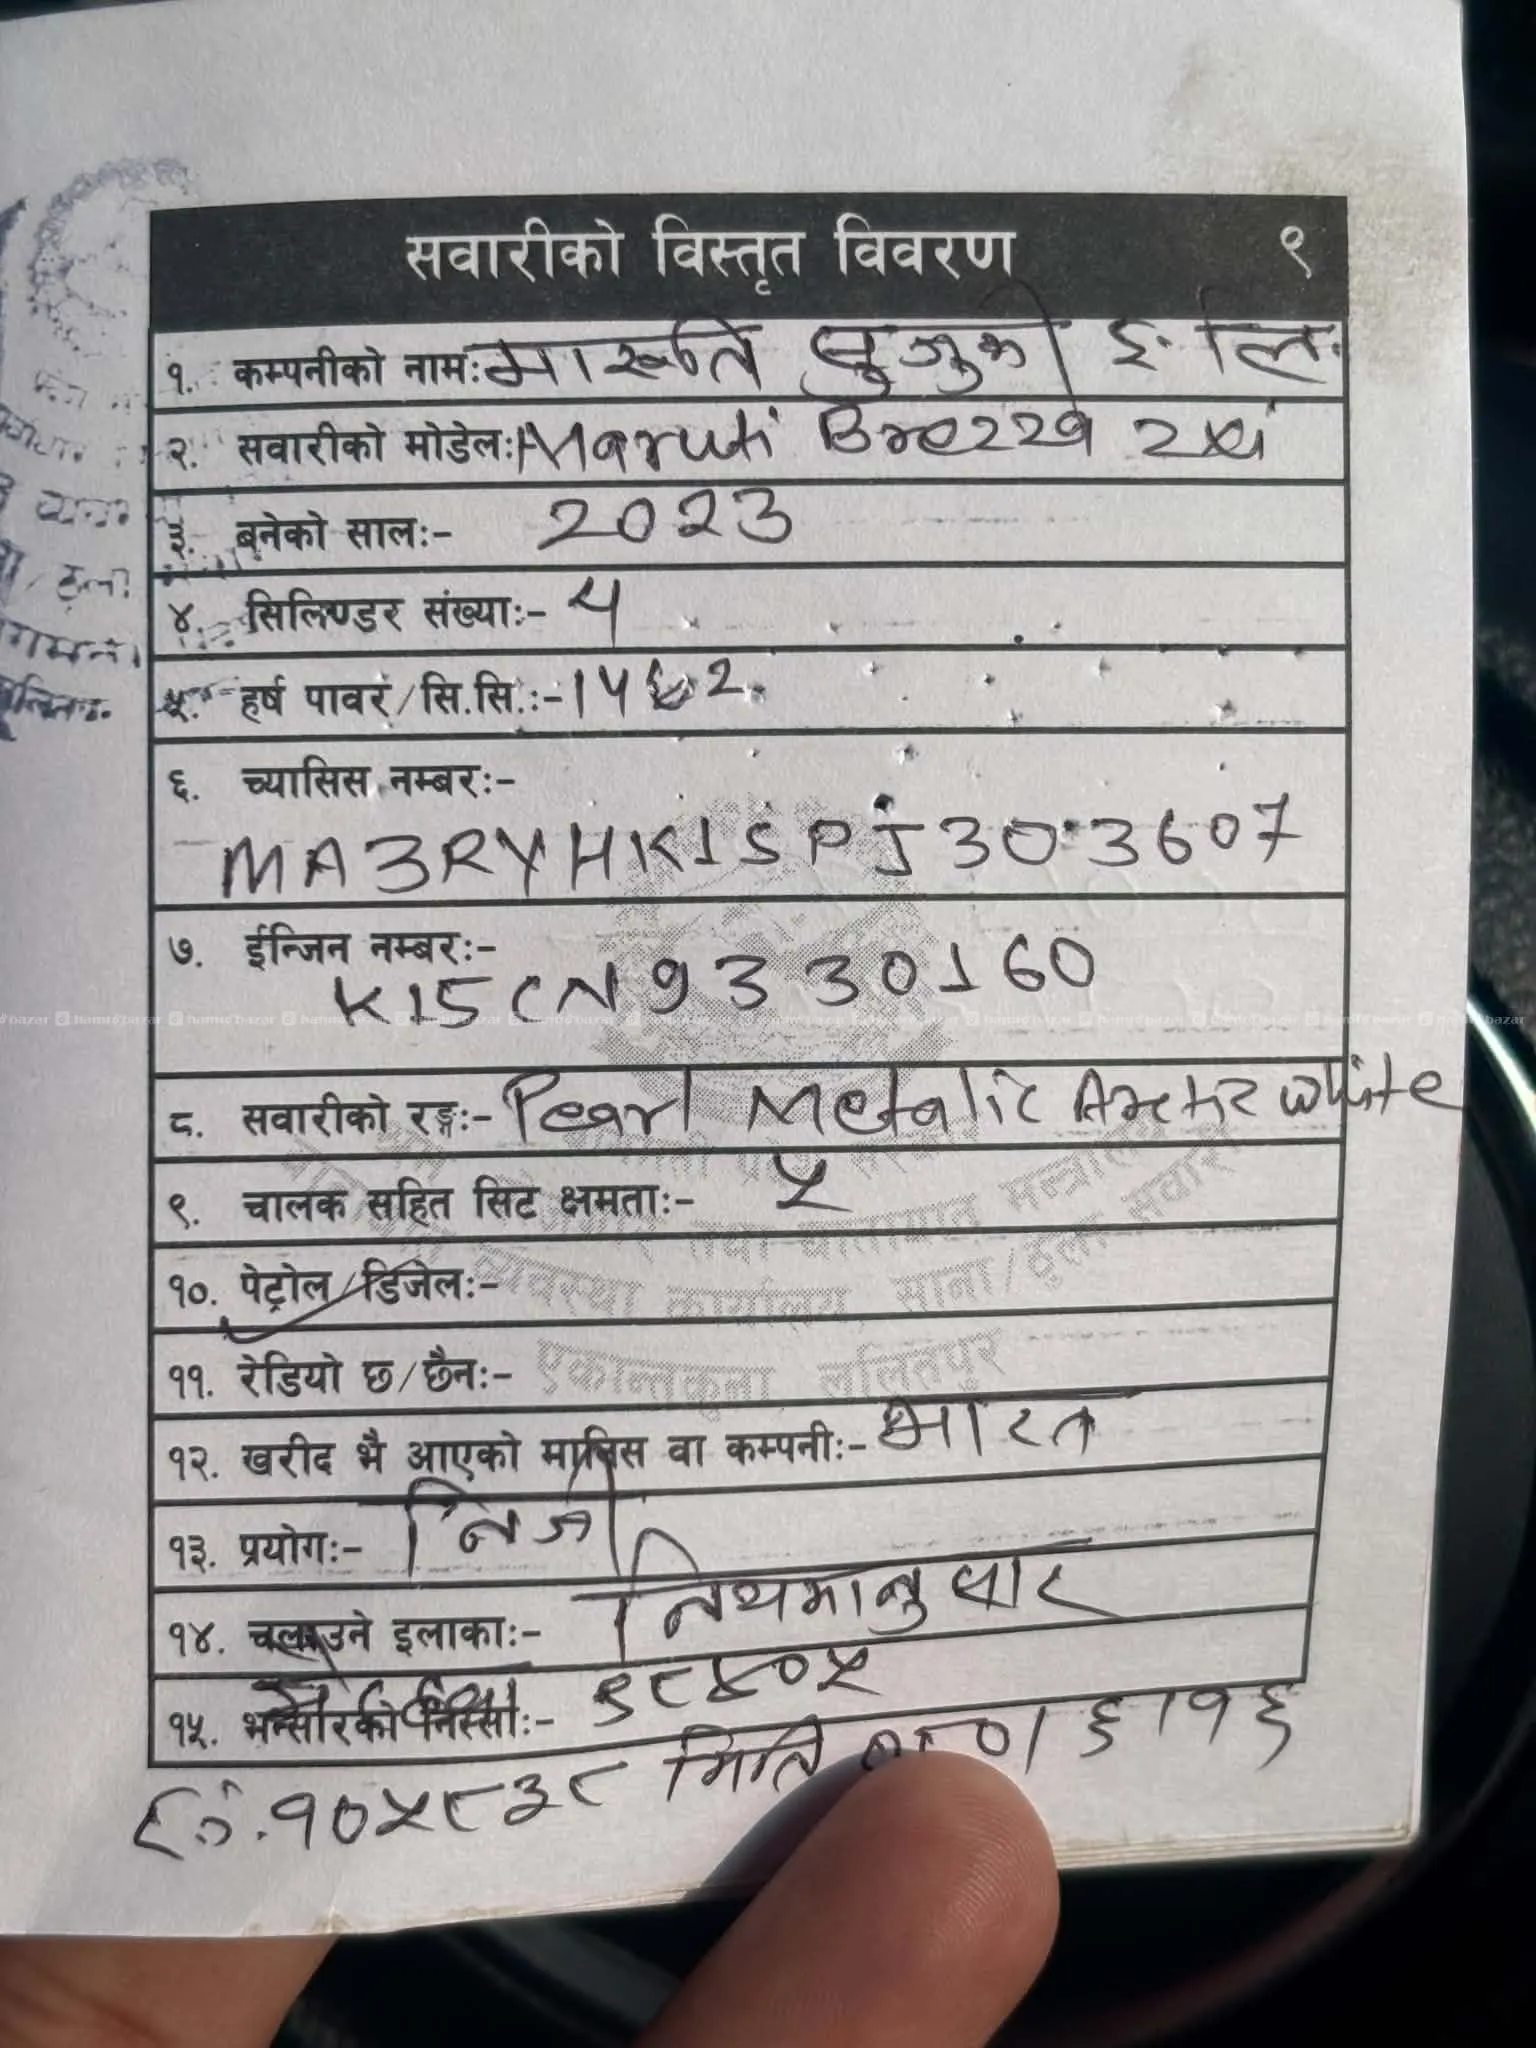 सवारीको विस्तृत विवरण ९
१. कम्पनीको नाम: मारूति सुजुकी इ. लि.
२. सवारीको मोडेल: Maruti Brezza zxi
३. बनेको साल:- 2023
४. सिलिण्डर संख्या:- 4
५. हर्ष पावर/सि.सि.:- 1462
६. च्यासिस नम्बर:-
MA3RYHK1SPJ303607
७. ईन्जिन नम्बर:-
K15CN9330160
hamrobazar
८. सवारीको रङ्ग:- Pearl Metalic Arctic White
९. चालक सहित सिट क्षमता:- ५
१०. पेट्रोल/डिजेल:-
११. रेडियो छ/छैन:-
एकान्तकुना ललितपुर
१२. खरीद भै आएको मानिस वा कम्पनी:- भारत
१३. प्रयोग:- निजी
१४. चलाउने इलाका:- नियमानुसार
१५. भन्सारको निस्सा:- ९८४०५
र.नं. १०५८३८ मिति ६।१६